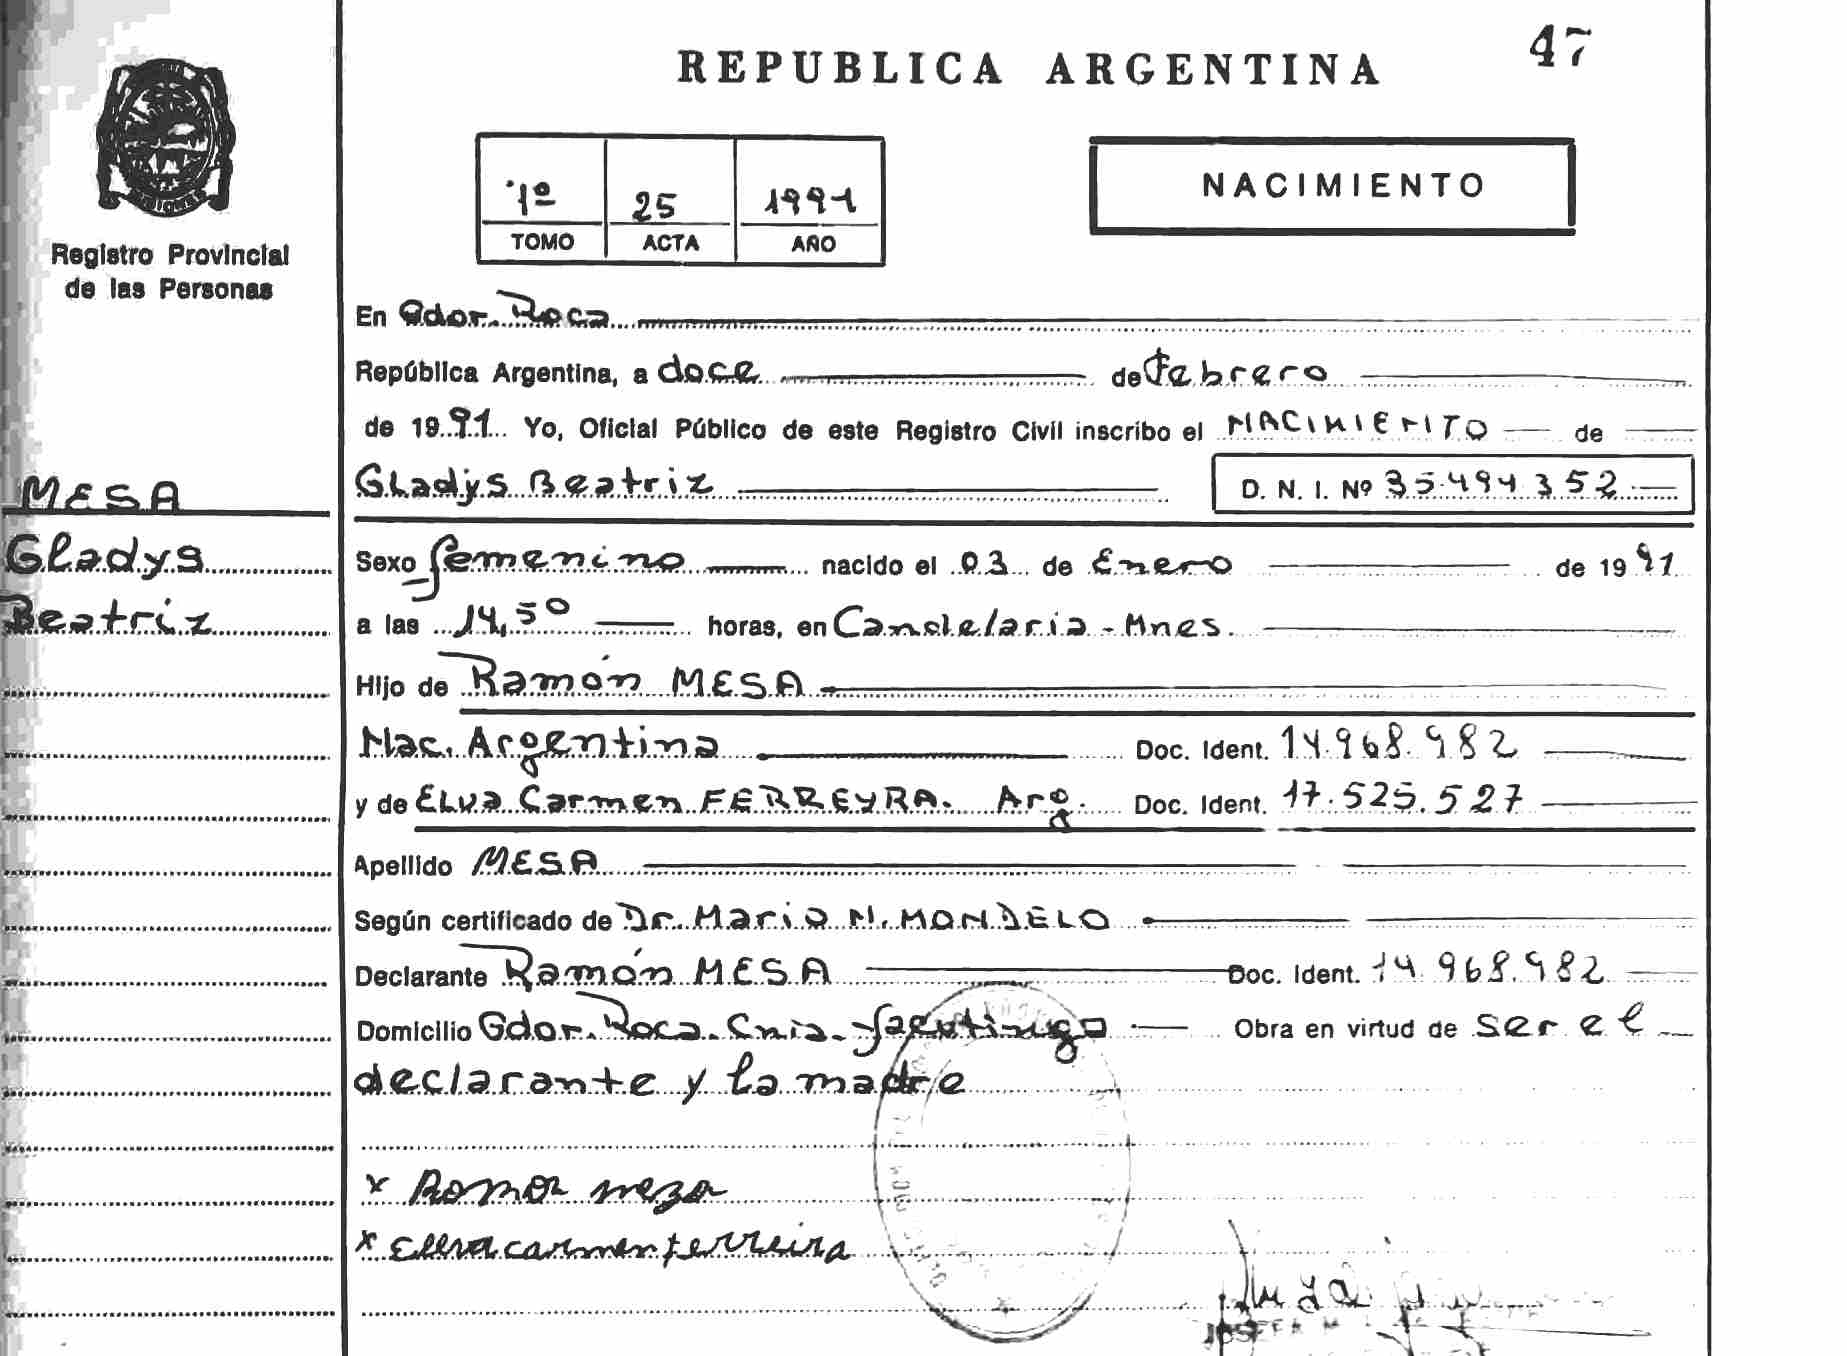 47
REPUBLICA ARGENTINA
Registro Provincial
de las Personas
1º 25 1991
TOMO ACTA AÑO
NACIMIENTO
En Gdor. Roca
República Argentina, a doce de Febrero
de 1991 Yo, Oficial Público de este Registro Civil inscribo el NACIMIENTO de
Gladys Beatriz D. N. I. Nº 35.494.352
MESA
Gladys
Beatriz
Sexo femenino nacido el 03 de Enero de 1991
a las 14,50 horas, en Candelaria - Mnes.
Hijo de Ramón MESA
Nac. Argentina Doc. Ident. 14.968.982
y de Elva Carmen FERREYRA. Arg. Doc. Ident. 17.525.527
Apellido MESA
Según certificado de Dr. Mario N. MONDELO
Declarante Ramón MESA Doc. Ident. 14.968.982
Domicilio Gdor. Roca. Cnia. Jacutinga Obra en virtud de ser el
declarante y la madre
x Ramon meza
x Ellva carmen ferreira
JOSEFA M.